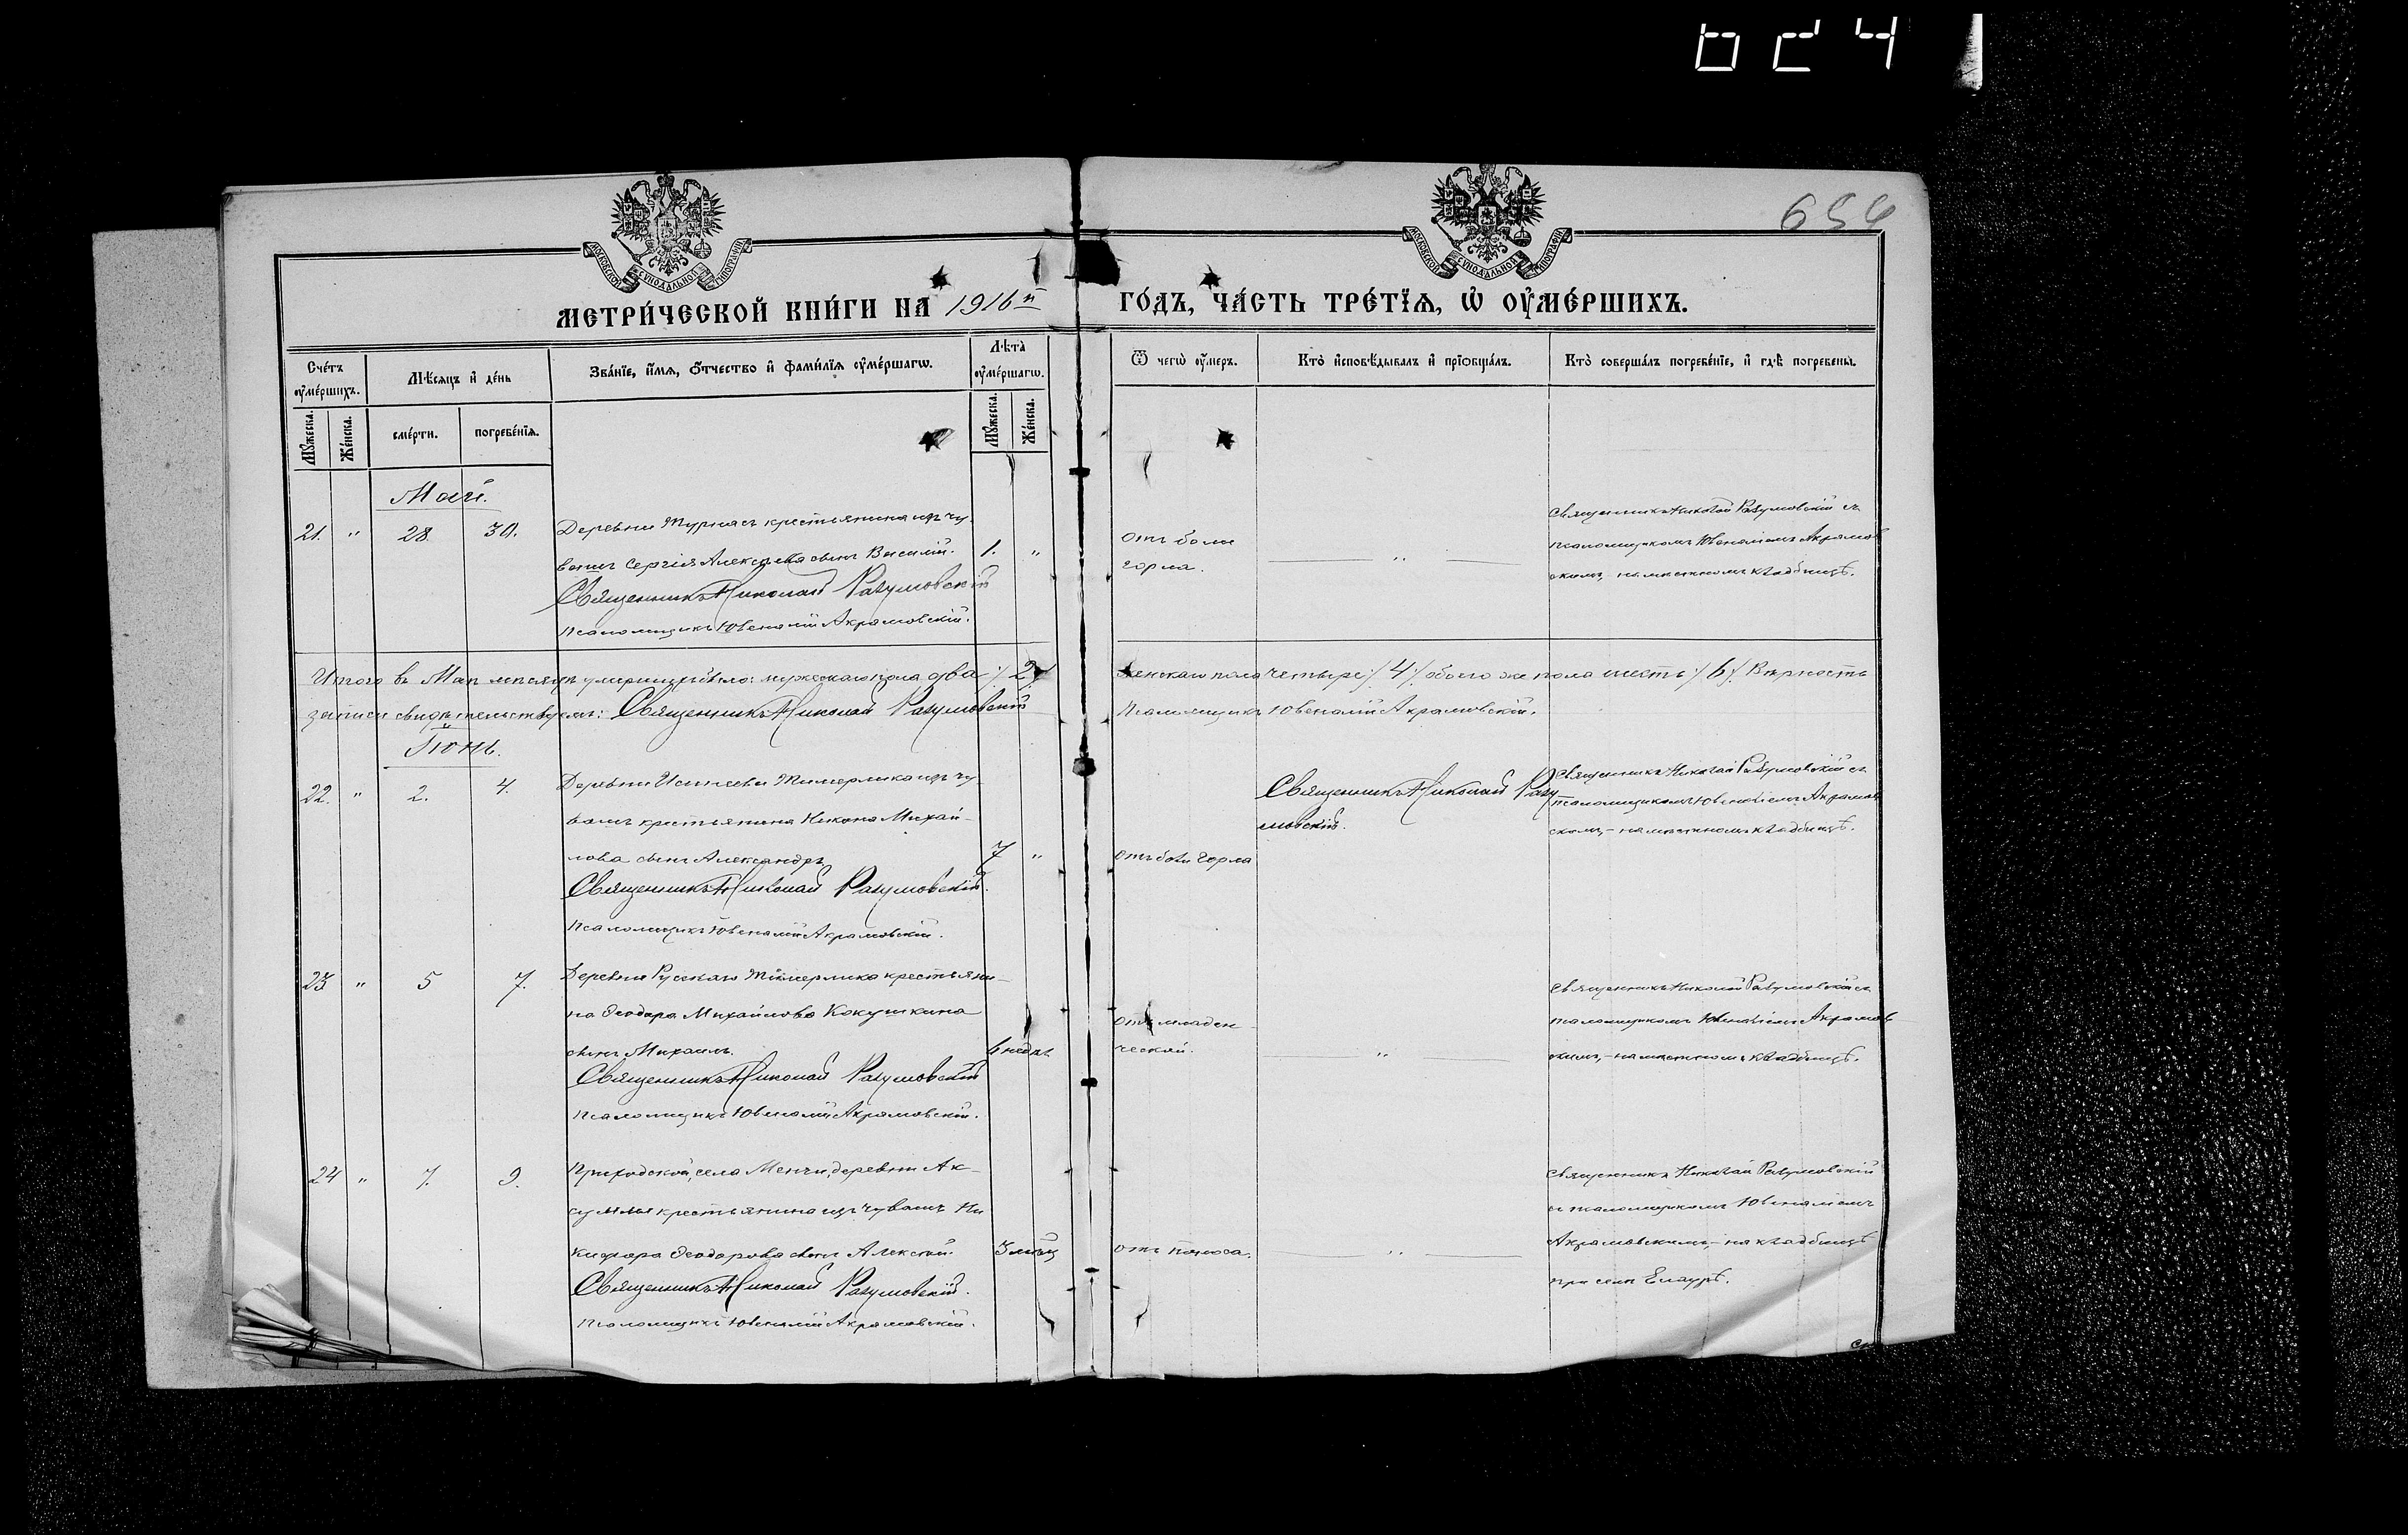 624
656
МОСКОВСКОЙ СУНОДАЛЬНОЙ ТИПОГРАФІИ
МОСКОВСКОЙ СУНОДАЛЬНОЙ ТИПОГРАФІИ
МЕТРИ́ЧЕСКОЙ КНИ́ГИ НА 1916й ГО́ДЪ, ЧА́СТЬ ТРЕ́ТЇѦ, Ѡ҆ ОУ҆МЕ́РШИХЪ.
Сче́тъ оу҆ме́ршихъ.
Мѣ́сяцъ и҆ де́нь
Зва́нїе, и҆́мя, ѻ҆́тчество и҆ фами́лїя оу҆ме́ршагѡ.
Лѣ́та оу҆ме́ршагѡ.
Ѿ чегѡ̀ оу҆́меръ.
Кто̀ и҆сповѣ́дывалъ и҆ прїѡбща́лъ.
Кто̀ соверша́лъ погребе́нїе, и҆ гдѣ̀ погребены̀.
Мꙋ́жеска.
Же́нска.
сме́рти.
погребе́нїя.
Мꙋ́жеска.
Же́нска.
Май.
21. " 28. 30. Деревни Тургасъ крестьянина изъ чу-
вашъ Сергія Алексѣева сынъ Василій. 1. "
Священникъ Николай Разумовскій
Псаломщикъ Ювеналій Акрамовскій.
Отъ боли
горла.
"
Священникъ Николай Разумовскій съ
псаломщикомъ Ювеналіемъ Акрамов
скимъ, - на мѣстномъ кладбищѣ.
Итого въ Маѣ мѣсяцѣ умершихъ было: мужескаго пола два /2/ женскаго пола четыре /4/ обоего же пола шесть /6/. Вѣрность
записи свидѣтельствуемъ: Священникъ Николай Разумовскій Псаломщикъ Ювеналій Акрамовскій.
Іюнь.
22. " 2. 4. Деревни Исенеевы Тимерлика изъ чу-
вашъ крестьянина Никона Михай-
лова сынъ Александръ. 7 "
Священникъ Николай Разумовскій.
Псаломщикъ Ювеналій Акрамовскій.
Отъ боли горла
Священникъ Николай Разу
мовскій.
Священникъ Николай Разумовскій съ
псаломщикомъ Ювеналіемъ Акрамов
скимъ, - на мѣстномъ кладбищѣ.
23 " 5 7. Деревни Русскаго Тимерлика крестьяни-
на Ѳеодора Михайлова Кокушкина
сынъ Михаилъ. 6 недѣл.
Священникъ Николай Разумовскій
Псаломщикъ Ювеналій Акрамовскій.
Отъ младен-
ческой.
"
Священникъ Николай Разумовскій съ
псаломщикомъ Ювеналіемъ Акрамов
скимъ, - на мѣстномъ кладбищѣ.
24 " 7. 9. Приходской, села Менчи, деревни Ак-
сумлы крестьянина изъ чувашъ Ни
кифора Ѳеодорова сынъ Алексѣй. 3 мѣсяц
Священникъ Николай Разумовскій.
Псаломщикъ Ювеналій Акрамовскій.
отъ поноса.
"
Священникъ Николай Разумовскій
съ псаломщикомъ Ювеналіемъ
Акрамовскимъ, - на кладбищѣ
при селѣ Елаурѣ.